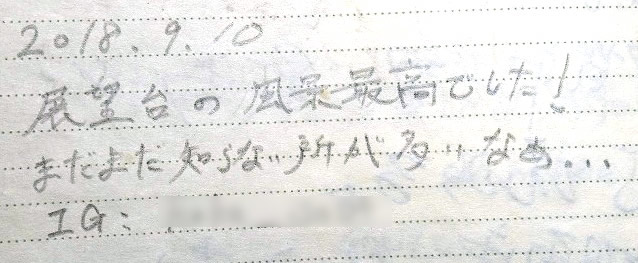 2018.9.10
展望台の風景最高でした!
まだまだ知らない所が多いなぁ...
IG: